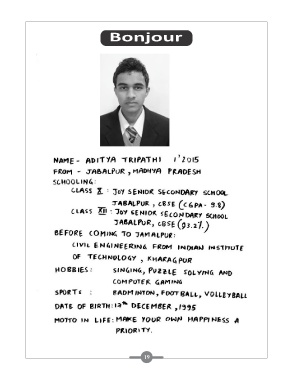 Bonjour
NAME - ADITYA TRIPATHI 1'2015
FROM - JABALPUR, MADHYA PRADESH
SCHOOLING:
CLASS X : JOY SENIOR SECONDARY SCHOOL
JABALPUR, CBSE (CGPA - 9.8)
CLASS XII : JOY SENIOR SECONDARY SCHOOL
JABALPUR, CBSE (93.2%)
BEFORE COMING TO JAMALPUR:
CIVIL ENGINEERING FROM INDIAN INSTITUTE
OF TECHNOLOGY, KHARAGPUR
HOBBIES: SINGING, PUZZLE SOLVING AND
COMPUTER GAMING
SPORTS : BADMINTON, FOOTBALL, VOLLEYBALL
DATE OF BIRTH: 12th DECEMBER, 1995
MOTTO IN LIFE: MAKE YOUR OWN HAPPINESS A
PRIORITY.
19